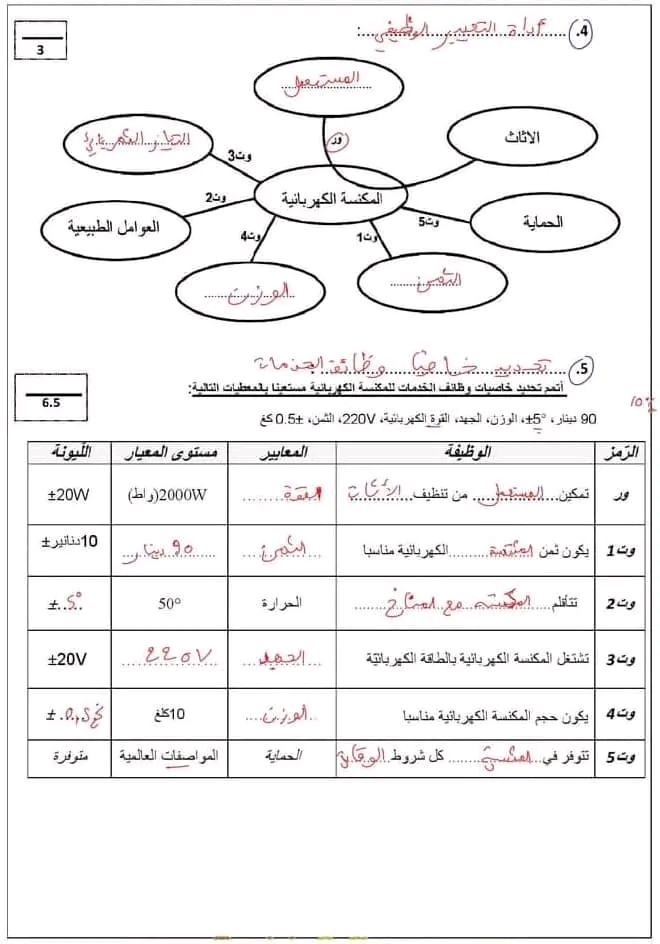 4. أداة التعبير الوظيفي:
3
المستعمل
الاثاث
التيار الكهربائي
ور
وت3
المكنسة الكهربائية
وت2
العوامل الطبيعية
الحماية
وت5
وت4
وت1
الثمن
الوزن
5. تحديد خاصيات وظائف الخدمات
6.5
أتمم تحديد خاصيات وظائف الخدمات للمكنسة الكهربائية مستعينا بالمعطيات التالية:
90 دينار، °5±، الوزن، الجهد، القوة الكهربائية، 220V، الثمن، ±0.5 كغ
الرّمز الوظيفة المعايير مستوى المعيار اللّيونة
ور تمكين المستعمل من تنظيف الأثاث القوة 2000W(واط) ±20W
وت1 يكون ثمن المكنسة الكهربائية مناسبا الثمن 90 دينار 10دنانير±
وت2 تتأقلم المكنسة مع المناخ الحرارة 50° ±5°
وت3 تشتغل المكنسة الكهربائية بالطاقة الكهربائيّة الجهد 220V ±20V
وت4 يكون حجم المكنسة الكهربائية مناسبا الوزن 10كلغ ±0,5 كغ
وت5 تتوفر في المكنسة كل شروط الوقاية الحماية المواصفات العالمية متوفرة